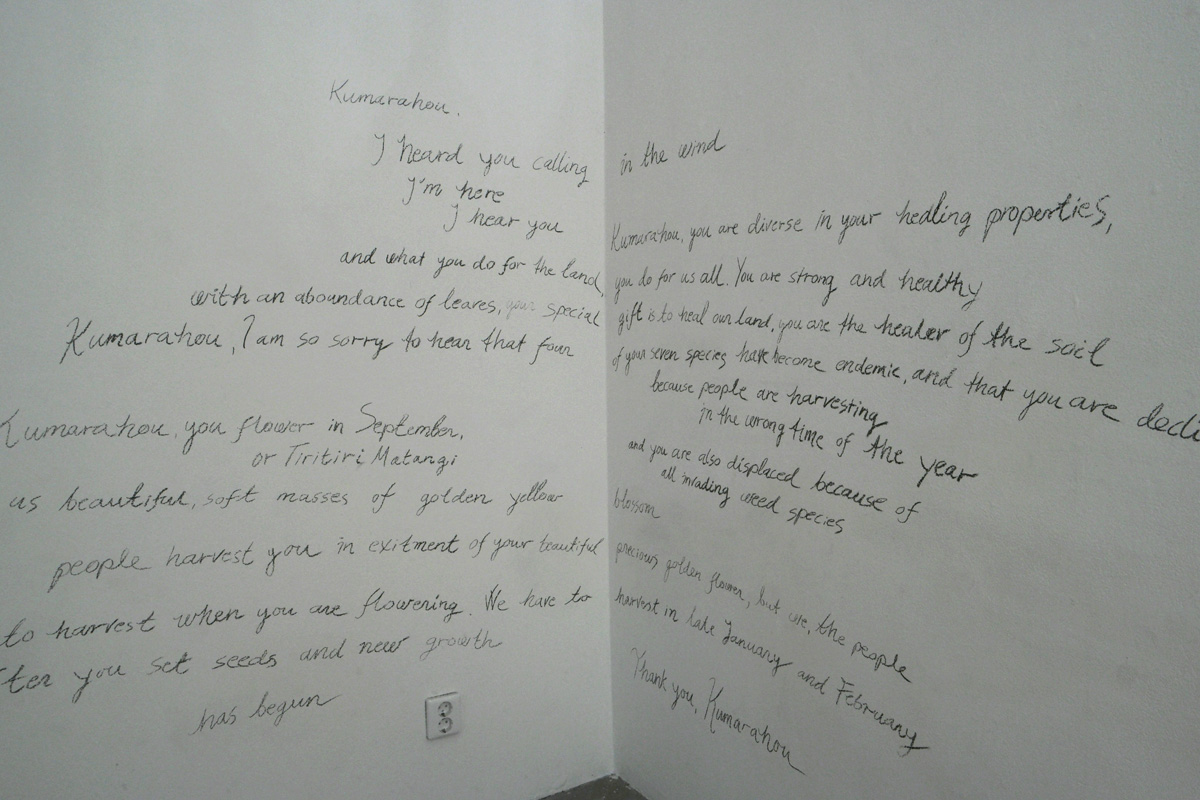 Kumarahou.
I heard you calling in the wind
I'm here
I hear you
Kumarahou, you are diverse in your healing properties,
and what you do for the land, you do for us all. You are strong and healthy
with an abundance of leaves, your special gift is to heal our land, you are the healer of the soil
Kumarahou, I am so sorry to hear that four of your seven species have become endemic, and that you are decli
because people are harvesting
in the wrong time of the year
and you are also displaced because of
all invading weed species
Kumarahou, you flower in September,
or Tiritiri Matangi
as beautiful, soft masses of golden yellow blossom
people harvest you in exitment of your beautiful precious golden flower, but we, the people
to harvest when you are flowering. We have to harvest in late January and February
ter you set seeds and new growth
has begun
Thank you, Kumarahou